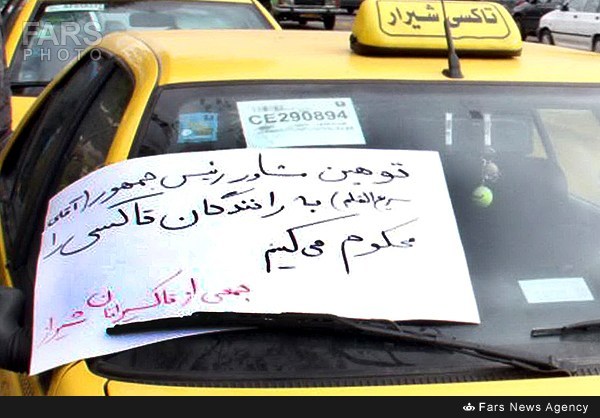 FARS
PHOTO
تاکسی شیراز
CE290894
توهین مشاور رئیس جمهور (آقای
سریع‌القلم) به رانندگان تاکسی را
محکوم می‌کنیم
جمعی از تاکسیرانان شیراز
Fars News Agency